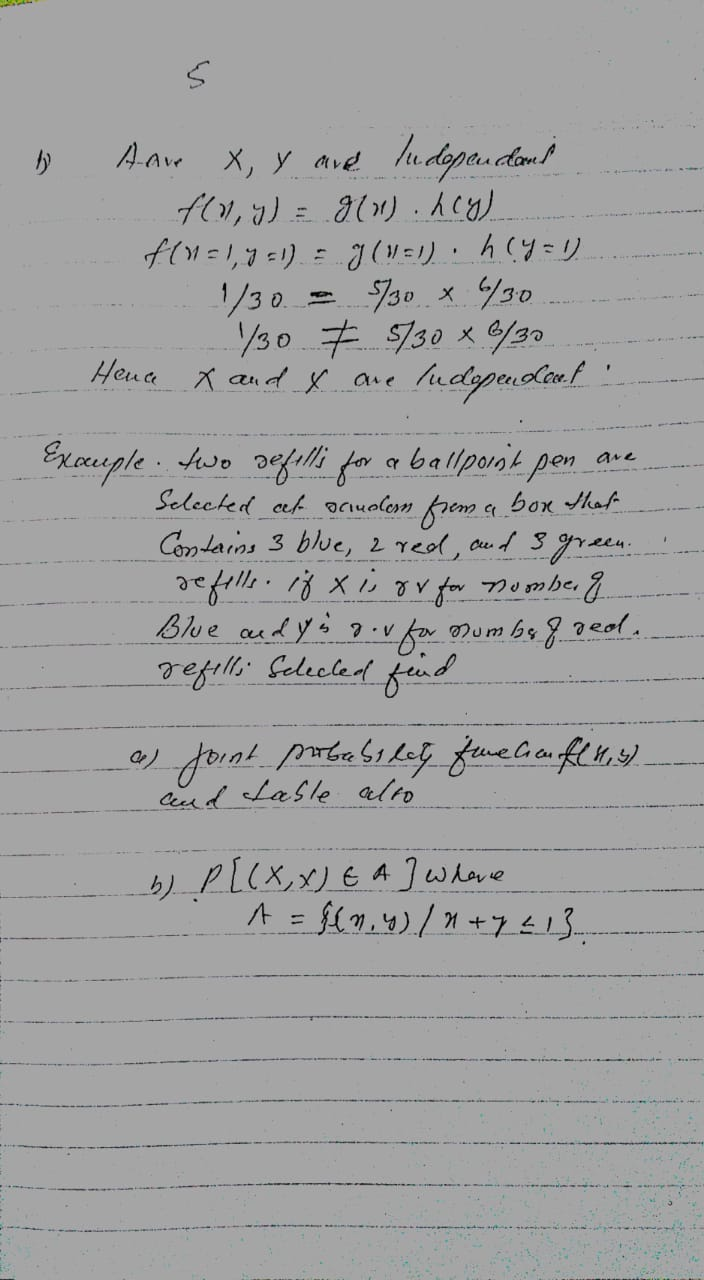 5
b) Aave X, Y are Independant
f(x, y) = g(x) . h(y)
f(x=1, y=1) = g(x=1) . h(y=1)
1/30 = 5/30 x 6/30
1/30 ≠ 5/30 x 6/30
Hence X and Y are Independent .
Example . two refills for a ballpoint pen are
Selected at random from a box that
Contains 3 blue, 2 red, and 3 green.
refills. if X is r v for number of
Blue and Y is r.v for number of red.
refills Selected find
a) joint probability function f(x, y)
and table also
b) P[(X, Y) ∈ A ] where
A = {(x, y) / x + y ≤ 1}